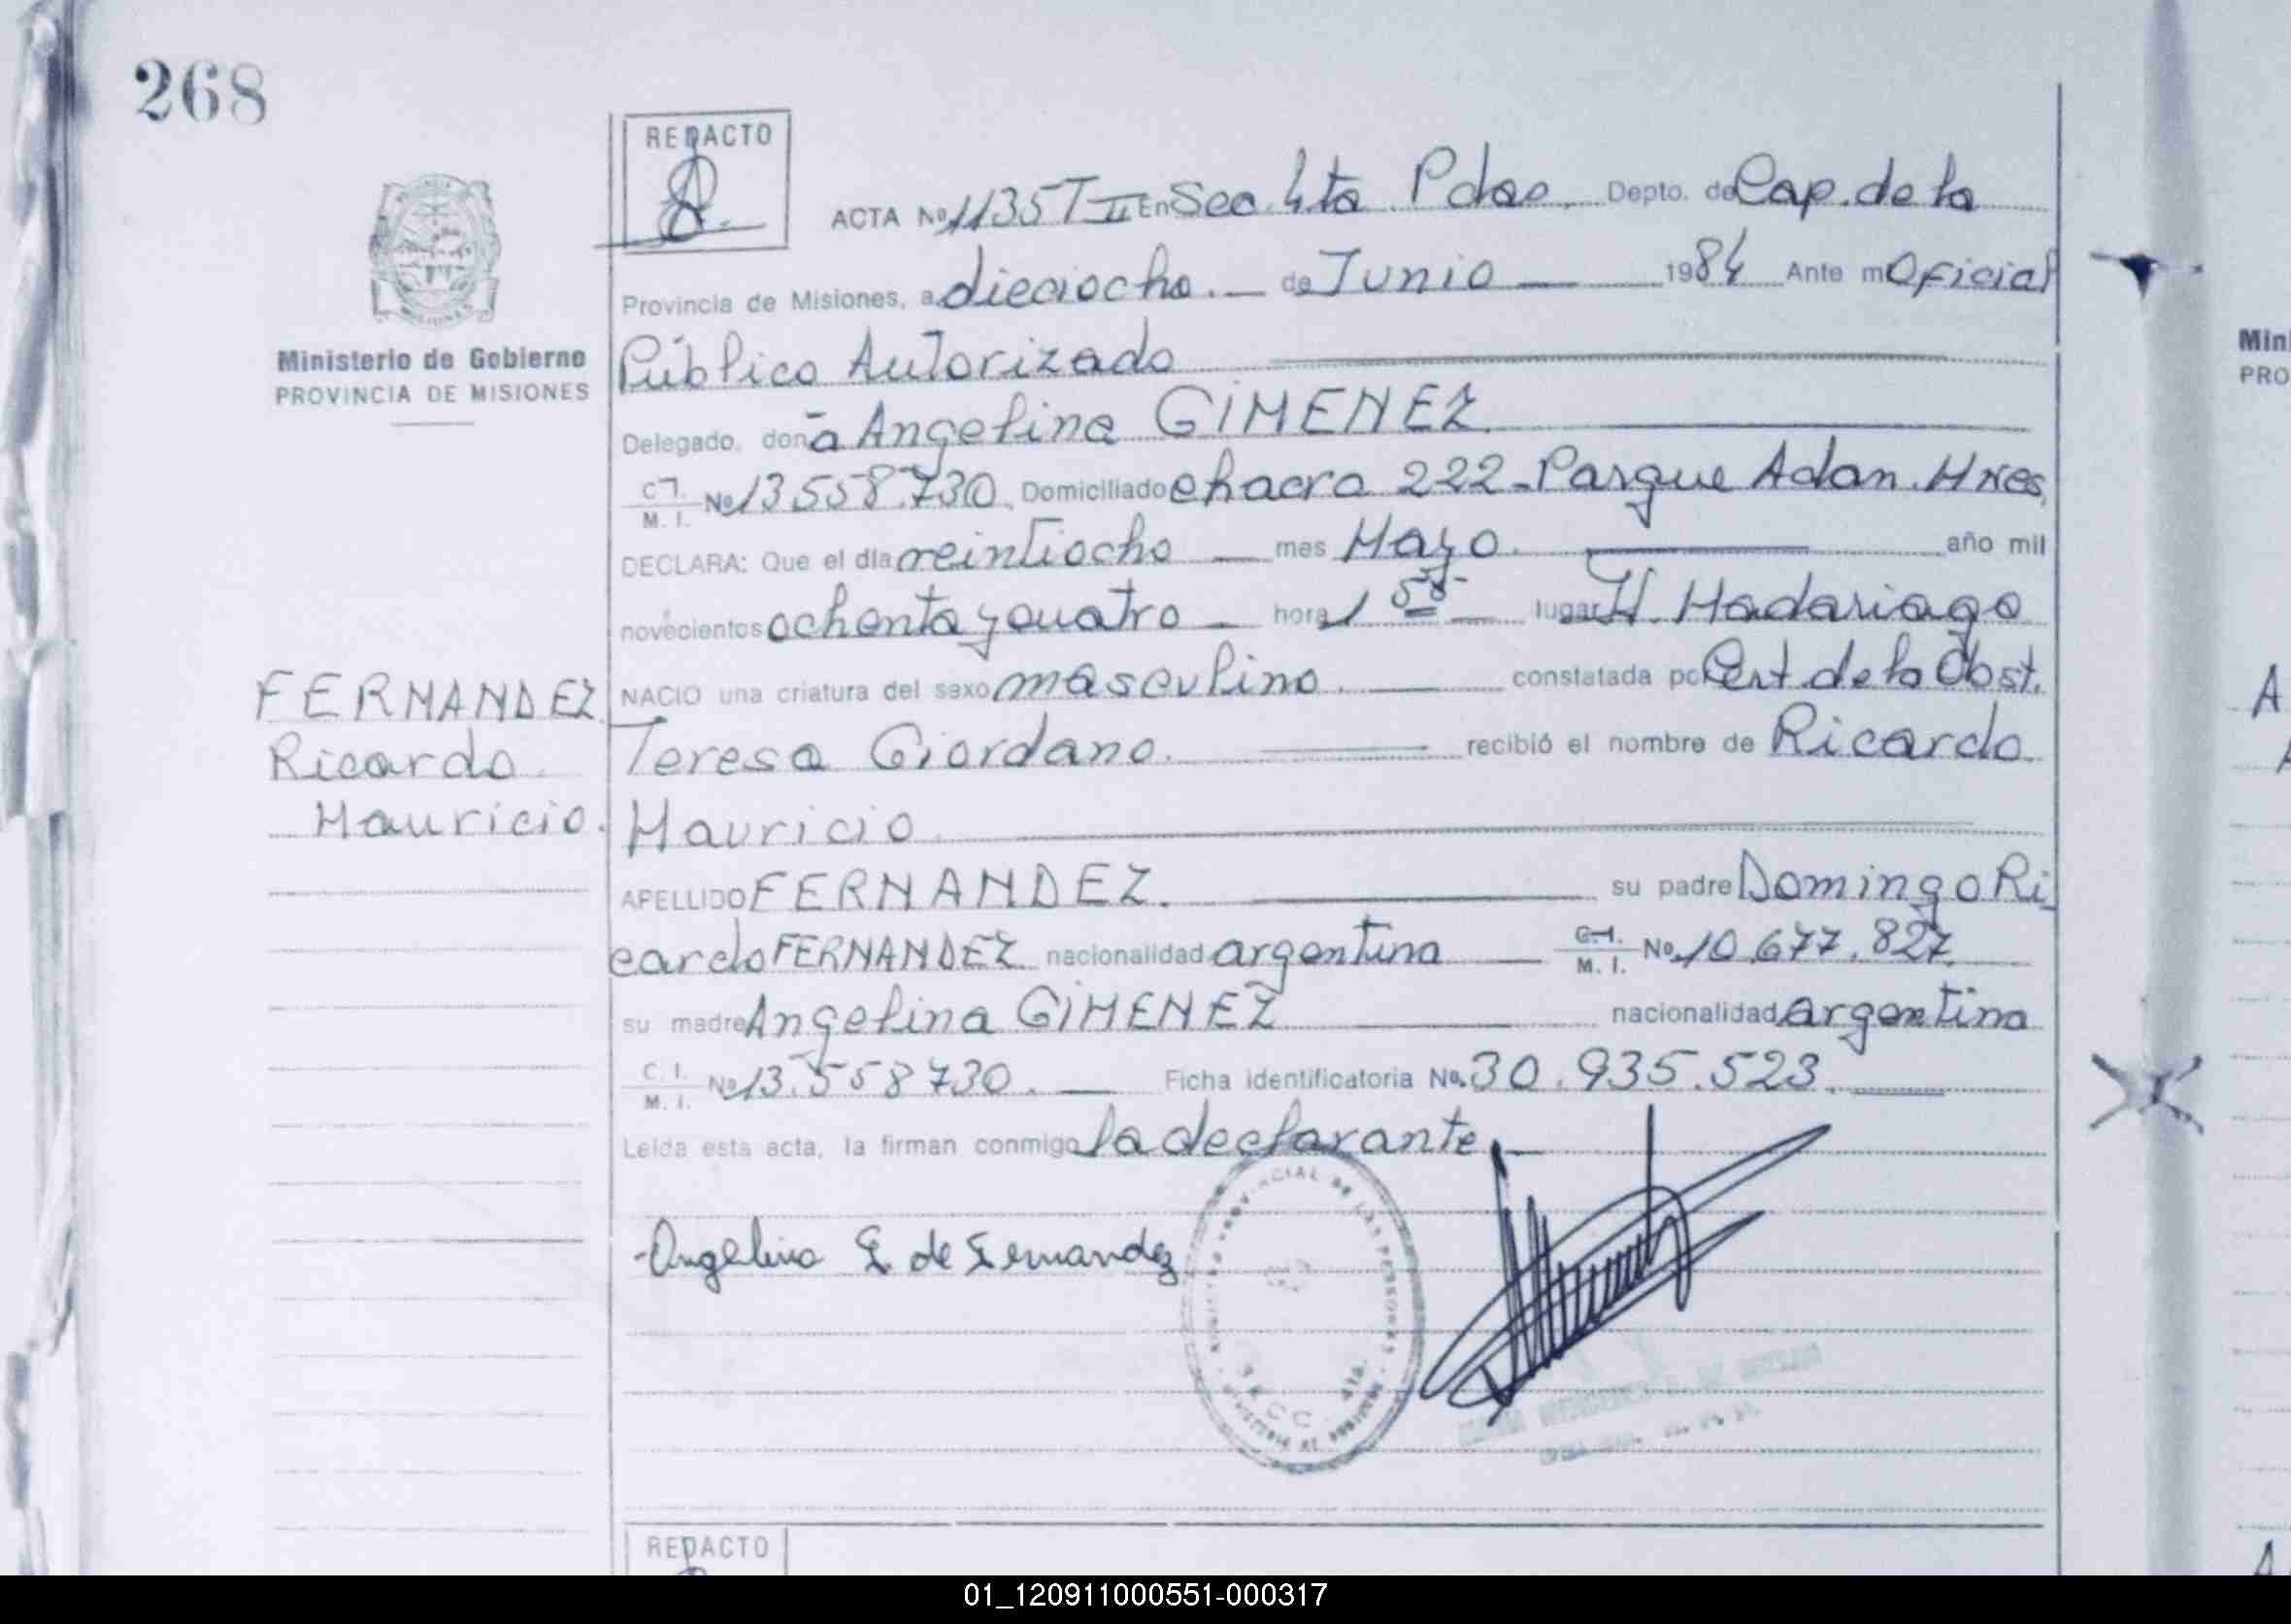 268
REDACTO
ACTA No 1135 T II En Sec. 4ta Pdas. Depto. de Cap. de la
Provincia de Misiones, a dieciocho. de Junio 1984 Ante mí Oficial
Ministerio de Gobierno
PROVINCIA DE MISIONES
Público Autorizado
Delegado, doña Angelina GIMENEZ
C.I. M.I. No 13.558.730. Domiciliado chacra 222 - Parque Adan. Mnes,
DECLARA: Que el día veintiocho mes Mayo. año mil
novecientos ochenta y cuatro hora 1 55 lugar H. Madariaga
NACIO una criatura del sexo masculino. constatada por Cert. de la Obst.
Teresa Giordano. recibió el nombre de Ricardo
Mauricio
FERNANDEZ
Ricardo
Mauricio.
APELLIDO FERNANDEZ. su padre Domingo Ri
cardo FERNANDEZ nacionalidad argentina C.I. M.I. No. 10.677.827
su madre Angelina GIMENEZ nacionalidad argentina
C.I. M.I. No 13.558730. Ficha identificatoria No. 30.935.523.
Leída esta acta, la firman conmigo la declarante
Angelina G. de Fernandez
REDACTO
Min
PRO
01_120911000551-000317